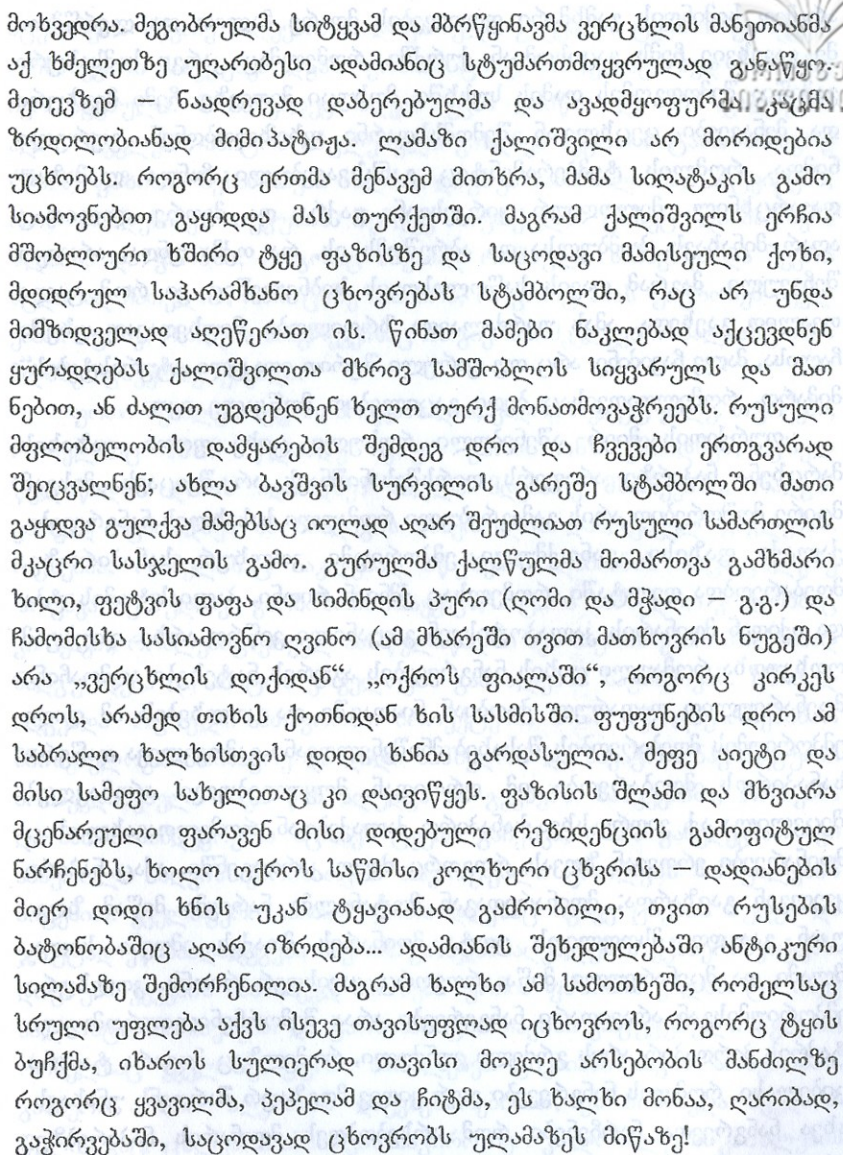 მოხვედრა. მეგობრულმა სიტყვამ და მბრწყინავმა ვერცხლის მანეთიანმა
აქ ხმელეთზე უღარიბესი ადამიანიც სტუმართმოყვრულად განაწყო.
მეთევზემ – ნაადრევად დაბერებულმა და ავადმყოფურმა კაცმა
ზრდილობიანად მიმიპატიჟა. ლამაზი ქალიშვილი არ მორიდებია
უცხოებს. როგორც ერთმა მენავემ მითხრა, მამა სიღატაკის გამო
სიამოვნებით გაყიდდა მას თურქეთში. მაგრამ ქალიშვილს ერჩია
მშობლიური ხშირი ტყე ფაზისზე და საცოდავი მამისეული ქოხი,
მდიდრულ საჰარამხანო ცხოვრებას სტამბოლში, რაც არ უნდა
მიმზიდველად აღეწერათ ის. წინათ მამები ნაკლებად აქცევდნენ
ყურადღებას ქალიშვილთა მხრივ სამშობლოს სიყვარულს და მათ
ნებით, ან ძალით უგდებდნენ ხელთ თურქ მონათმოვაჭრეებს. რუსული
მფლობელობის დამყარების შემდეგ დრო და ჩვევები ერთგვარად
შეიცვალნენ; ახლა ბავშვის სურვილის გარეშე სტამბოლში მათი
გაყიდვა გულქვა მამებსაც იოლად აღარ შეუძლიათ რუსული სამართლის
მკაცრი სასჯელის გამო. გურულმა ქალწულმა მომართვა გამხმარი
ხილი, ფეტვის ფაფა და სიმინდის პური (ღომი და მჭადი – გ.გ.) და
ჩამომისხა სასიამოვნო ღვინო (ამ მხარეში თვით მათხოვრის ნუგეში)
არა „ვერცხლის დოქიდან“ „ოქროს ფიალაში“, როგორც კირკეს
დროს, არამედ თიხის ქოთნიდან ხის სასმისში. ფუფუნების დრო ამ
საბრალო ხალხისთვის დიდი ხანია გარდასულია. მეფე აიეტი და
მისი სამეფო სახელითაც კი დაივიწყეს. ფაზისის შლამი და მხვიარა
მცენარეული ფარავენ მისი დიდებული რეზიდენციის გამოფიტულ
ნარჩენებს, ხოლო ოქროს საწმისი კოლხური ცხვრისა – დადიანების
მიერ დიდი ხნის უკან ტყავიანად გამრობილი, თვით რუსების
ბატონობაშიც აღარ იზრდება... ადამიანის შეხედულებაში ანტიკური
სილამაზე შემორჩენილია. მაგრამ ხალხი ამ სამოთხეში, რომელსაც
სრული უფლება აქვს ისევე თავისუფლად იცხოვროს, როგორც ტყის
ბუჩქმა, იხაროს სულიერად თავისი მოკლე არსებობის მანძილზე
როგორც ყვავილმა, პეპელამ და ჩიტმა, ეს ხალხი მონაა, ღარიბად,
გაჭირვებაში, საცოდავად ცხოვრობს ულამაზეს მიწაზე!